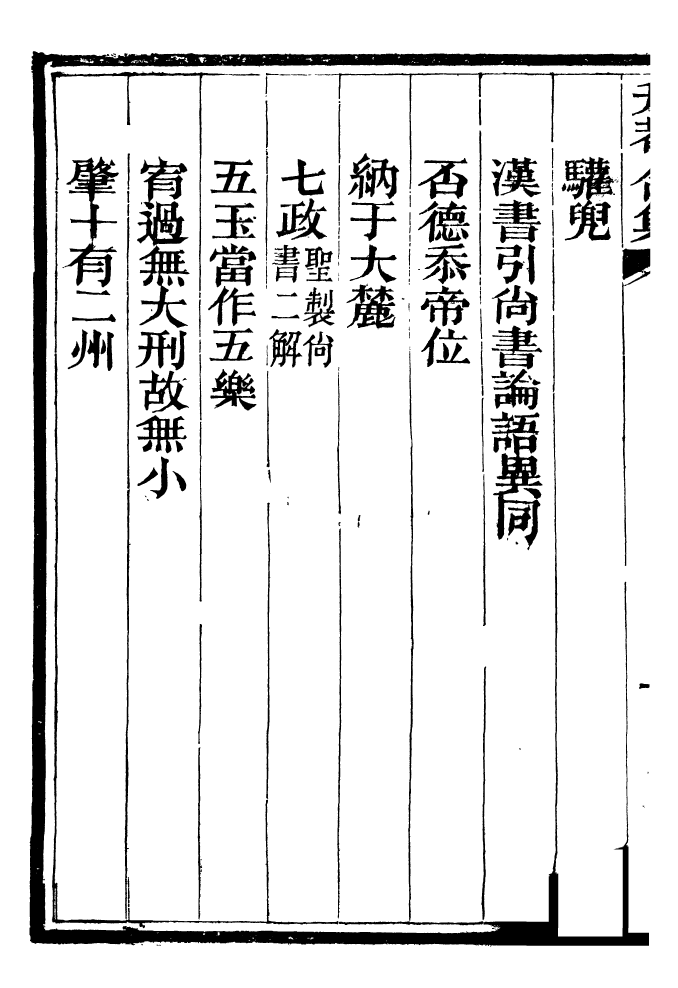 驩兜
漢書引尚書論語異同
否德忝帝位
納于大麓
七政聖製尚書二解
五玉當作五樂
宥過無大刑故無小
肇十有二州